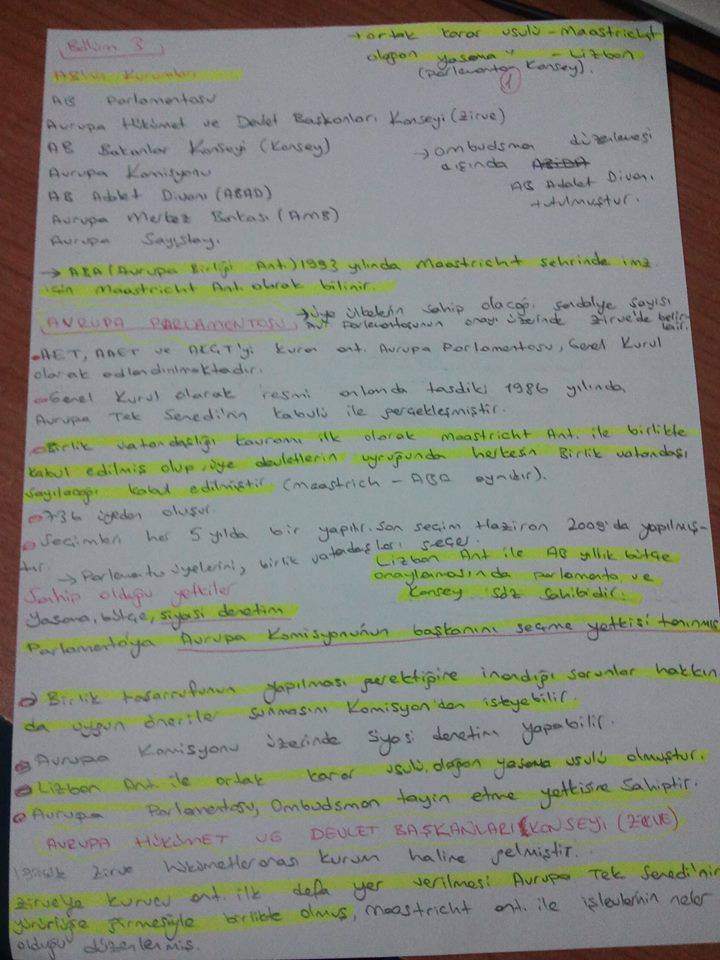 Bölüm 3
→ ortak karar usulü - Maastricht
olağan yasama" - Lizbon
(Parlamenton Konsey).
1
AB'nin Kurumları
AB Parlamentosu
Avrupa Hükümet ve Devlet Başkanları Konseyi (Zirve)
AB Bakanlar Konseyi (Konsey)
Avrupa Komisyonu
AB Adalet Divanı (ABAD)
Avrupa Merkez Bankası (AMB)
Avrupa Sayıştayı
→ ombudsman düzenlemesi
dışında
AB Adalet Divanı
tutulmuştur.
→ ABA (Avrupa Birliği Ant.) 1993 yılında Maastricht şehrinde imz
için Maastricht Ant. olarak bilinir.
AVRUPA PARLAMENTOSU → üye ülkelerin sahip olacağı sandalye sayısı
Parlamentosunun onayı üzerinde zirve'de belir
lenir.
• AET, AAET ve AKÇT'yi kuran ant. Avrupa Parlamentosu, Genel Kurul
olarak adlandırılmaktadır.
• Genel Kurul olarak resmi anlamda tasdiki 1986 yılında
Avrupa Tek Senedi'nin kabulü ile gerçekleşmiştir.
• Birlik vatandaşlığı kavramı ilk olarak Maastricht Ant. ile birlikte
kabul edilmiş olup, üye devletlerin uyruğunda herkesin Birlik vatandaşı
sayılacağı kabul edilmiştir (Maastrich - ABA aynıdır).
• 736 üyeden oluşur.
• Seçimleri her 5 yılda bir yapılır. Son seçim Haziran 2009'da yapılmış-
tır. → Parlamento üyelerini, birlik vatadaşları seçer.
Sahip olduğu yetkiler
Lizbon Ant ile AB yıllık bütçe
onaylamasında parlamento ve
Konsey söz sahibidir.
Yasama, bütçe, siyasi denetim
Parlamento'ya Avrupa Komisyonunun başkanını seçme yetkisi tanınmış
• Birlik tasarrufunun yapılması gerektiğine inandığı sorunlar hakkın
da uygun öneriler sunmasını Komisyon'dan isteyebilir.
• Avrupa Komisyonu üzerinde siyasi denetim yapabilir.
• Lizbon Ant ile ortak karar usulü, olağan yasama usulü olmuştur.
• Avrupa Parlamentosu, Ombudsman tayin etme yetkisine sahiptir.
AVRUPA HÜKÜMET VE DEVLET BAŞKANLARI KONSEYİ (ZİRVE)
zirve hükümetlerarası kurum haline gelmiştir.
Zirveye kurucu ant. ilk defa yer verilmesi Avrupa Tek Senedi'nin
yürürlüğe girmesiyle birlikte olmuş, Maastricht ant. ile işlevlerinin neler
olduğu düzenlenmiş.